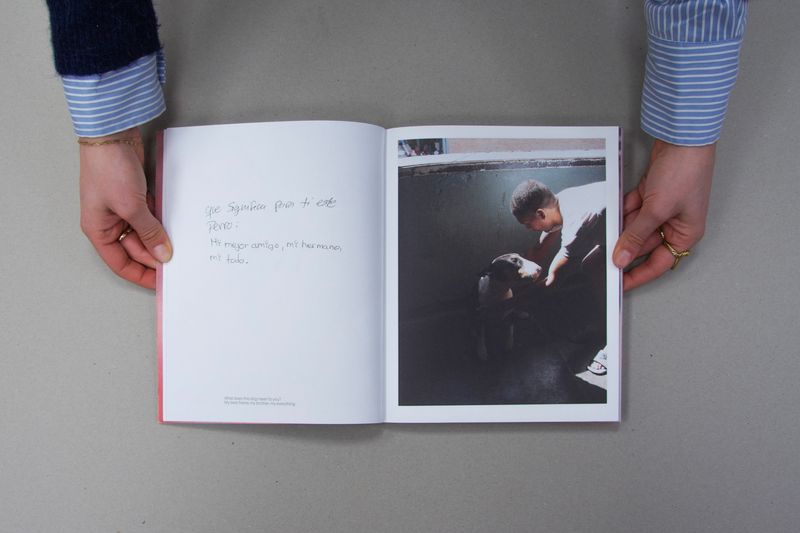 que significa para ti este
Perro:
Mi mejor amigo, mi hermano,
mi todo.
What does this dog mean to you?
My best friend, my brother, my everything.